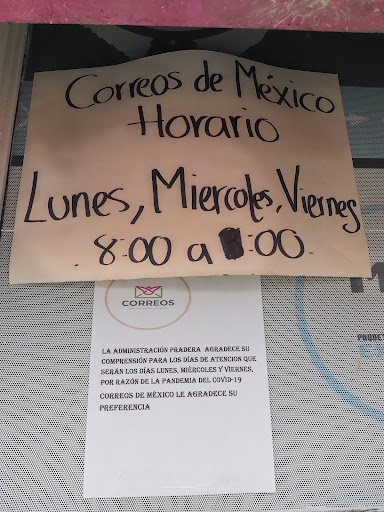 Correos de México
Horario
Lunes, Miercoles, Viernes
8:00 a :00
CORREOS
LA ADMINISTRACIÓN PRADERA AGRADECE SU
COMPRENSIÓN PARA LOS DÍAS DE ATENCION QUE
SERÁN LOS DÍAS LUNES, MIÉRCOLES Y VIERNES,
POR RAZÓN DE LA PANDEMIA DEL COVID-19
CORREOS DE MÉXICO LE AGRADECE SU
PREFERENCIA